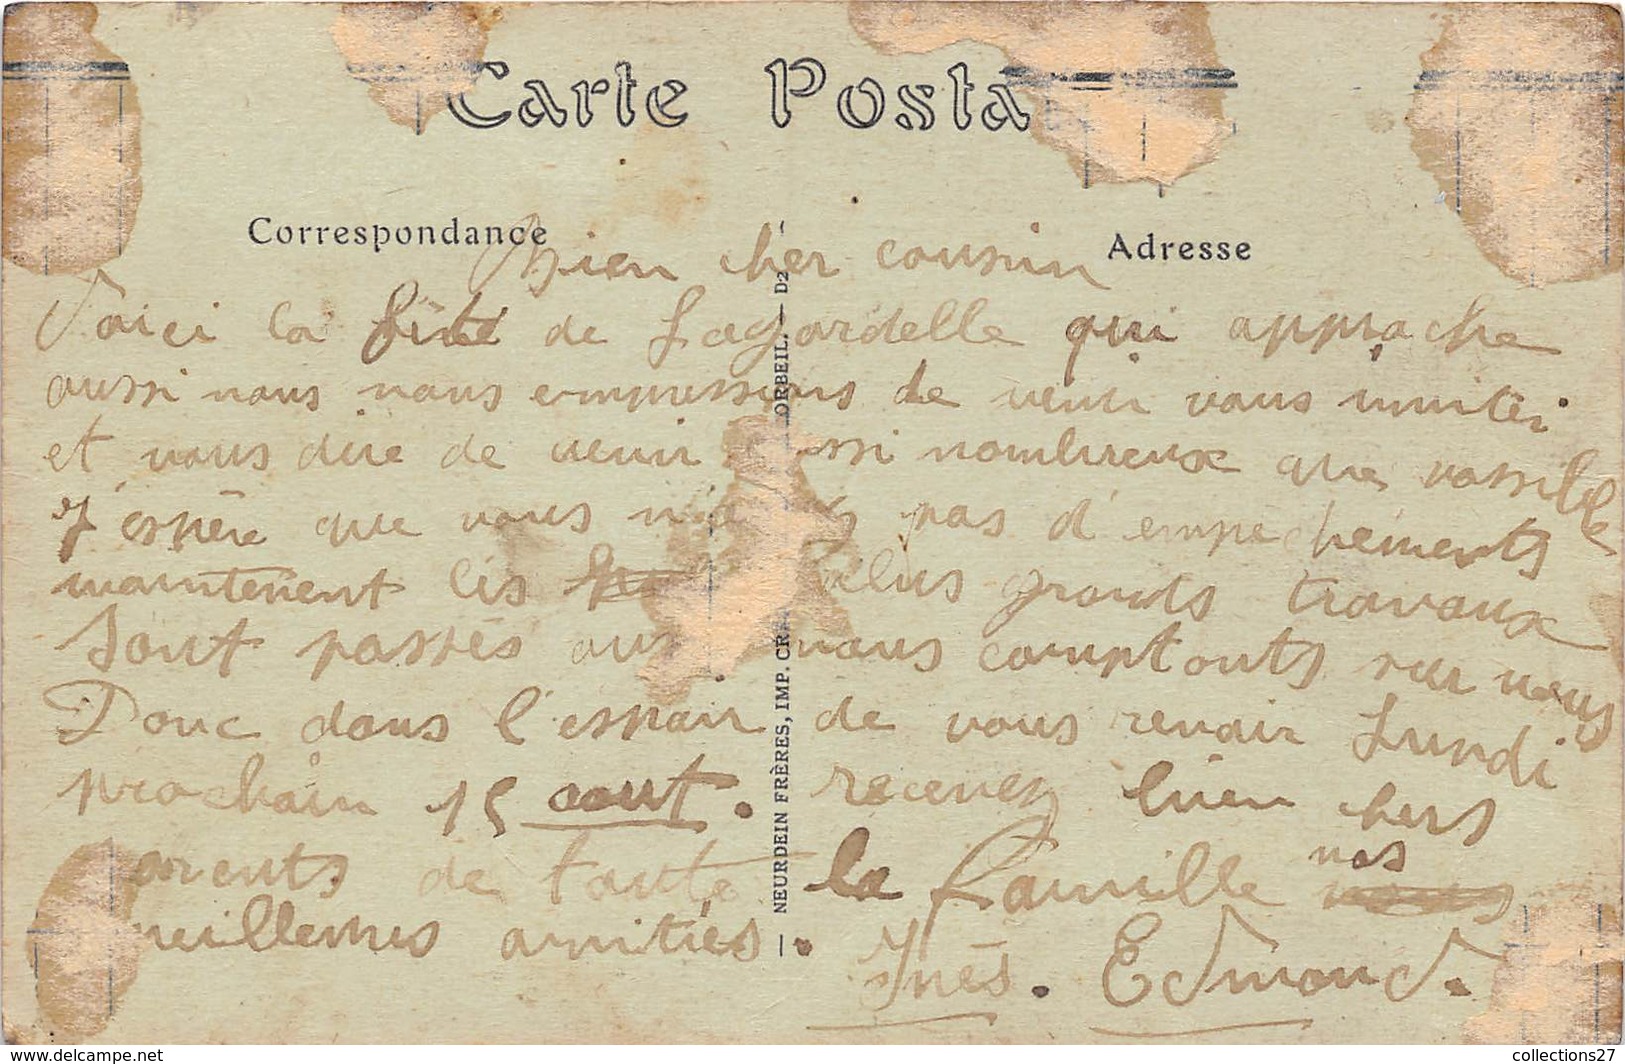 Carte Posta
Correspondance
Adresse
Bien cher cousin
Voici la fête de Lagardelle qui approche
aussi nous nous empressons de venir vous inviter
et vous dire de venir ssi nombreux que possible
J'espère que vous n'a pas d'empechements
maintenent les plus grands travaux
sont passés aus nous comptonts sur vous
Donc dans l'espoir de vous revoir Lundi
prochain 15 aout. recevez bien chers
arents de toute la famille nos
meillemes amitiés.
Inès. Edmond.
NEURDEIN FRÈRES, IMP. CR ORBEIL. — D2
www.delcampe.net
collections27